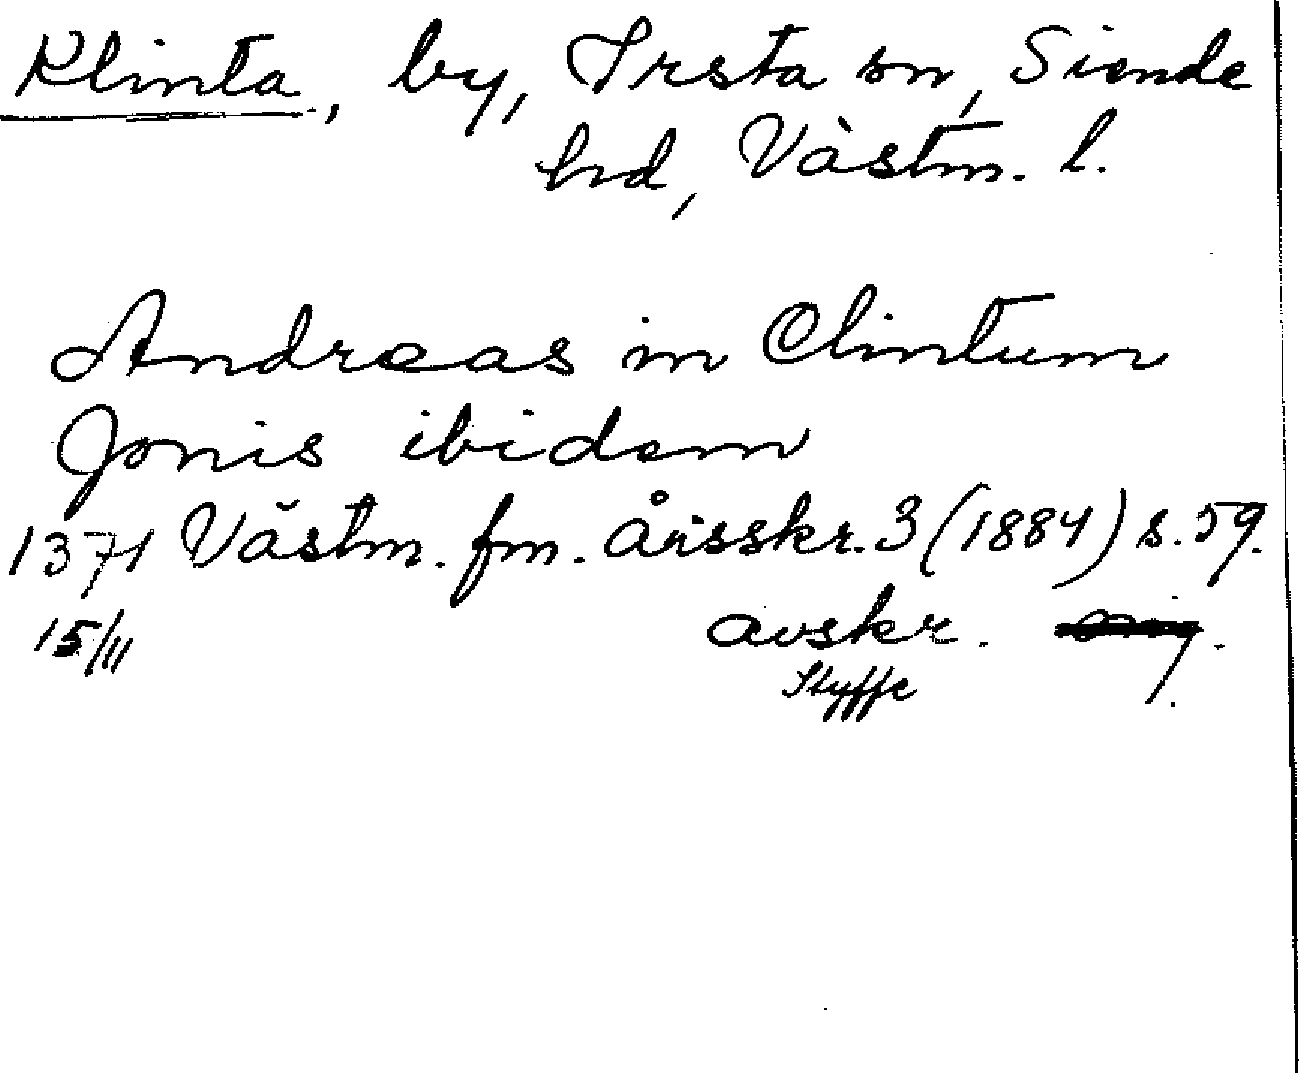 Klinta, by, Irsta sn, Siende
hrd, Västm. l.
Andreas in Clintum
Jonis ibidem
1371 Västm. fm. årsskr. 3 (1884) s. 59.
15/11 avskr.
Styffe